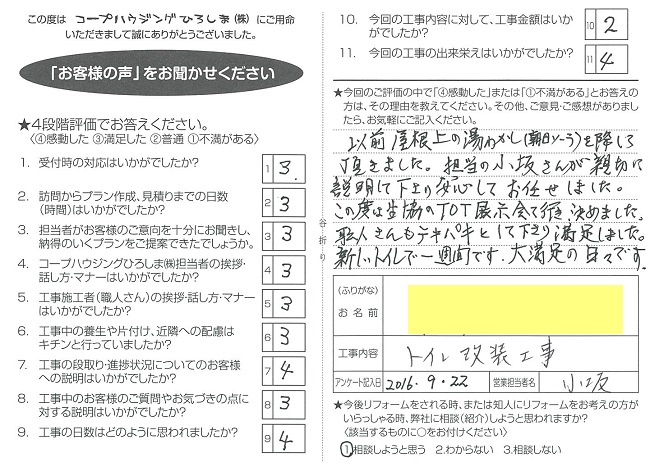 この度は コープハウジングひろしま(株) にご用命
いただきまして誠にありがとうございました。
「お客様の声」をお聞かせください
★4段階評価でお答えください。
〈④感動した ③満足した ②普通 ①不満がある〉
1. 受付時の対応はいかがでしたか?
1 3.
2. 訪問からプラン作成、見積りまでの日数
(時間)はいかがでしたか?
2 3
3. 担当者がお客様のご意向を十分にお聞きし、
納得のいくプランをご提案できたでしょうか。
3 3
4. コープハウジングひろしま㈱担当者の挨拶・
話し方・マナーはいかがでしたか?
4 3
5. 工事施工者(職人さん)の挨拶・話し方・マナー
はいかがでしたか?
5 3
6. 工事中の養生や片付け、近隣への配慮は
キチンと行っていましたか?
6 3
7. 工事の段取り・進捗状況についてのお客様
への説明はいかがでしたか?
7 4
8. 工事中のお客様のご質問やお気づきの点に
対する説明はいかがでしたか?
8 3
9. 工事の日数はどのように思われましたか?
9 4
谷折り
10. 今回の工事内容に対して、工事金額はいか
がでしたか?
10 2
11. 今回の工事の出来栄えはいかがでしたか?
11 4
★今回のご評価の中で「④感動した」または「①不満がある」とお答え
の方は、その理由を教えてください。その他、ご意見・ご感想がありまし
たら、お気軽にご記入ください。
以前屋根上の湯わかし(朝日ソーラ)を降して
頂きました。担当の小坂さんが親切に
説明して下さり安心してお任せしました。
この度は生協のTOTO展示会で行き決めました。
職人さんもテキパキとして下さり満足しました。
新しいトイレで一週間です。大満足の日々です。
(ふりがな)
お名前
工事内容 トイレ改装工事
アンケート記入日 2016.9.22 営業担当者名 小坂
★今後リフォームをされる時、または知人にリフォームをお考えの方が
いらっしゃる時、弊社に相談(紹介)しようと思われますか?
〈該当するものに○をお付けください〉
①相談しようと思う 2.わからない 3.相談しない